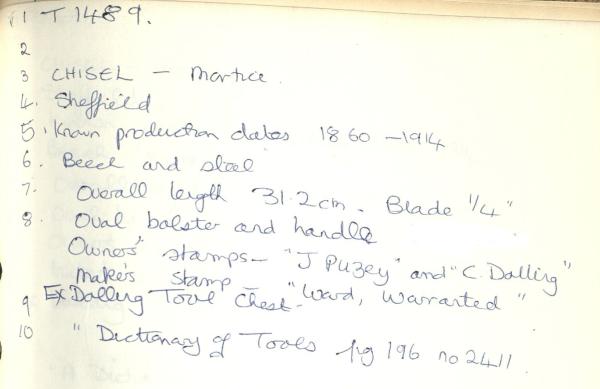 1 T 1489.
2
3 CHISEL - Mortice.
4. Sheffield
5. Known production dates 1860 - 1914
6. Beech and steel
7. Overall length 31.2cm. Blade 1/4"
8. Oval bolster and handle
Owners' stamps - "J Puzey" and "C. Dalling"
Makers stamp - "Ward, Warranted"
9 Ex Dalling Tool Chest.
10 "Dictionary of Tools fig 196 no 2411